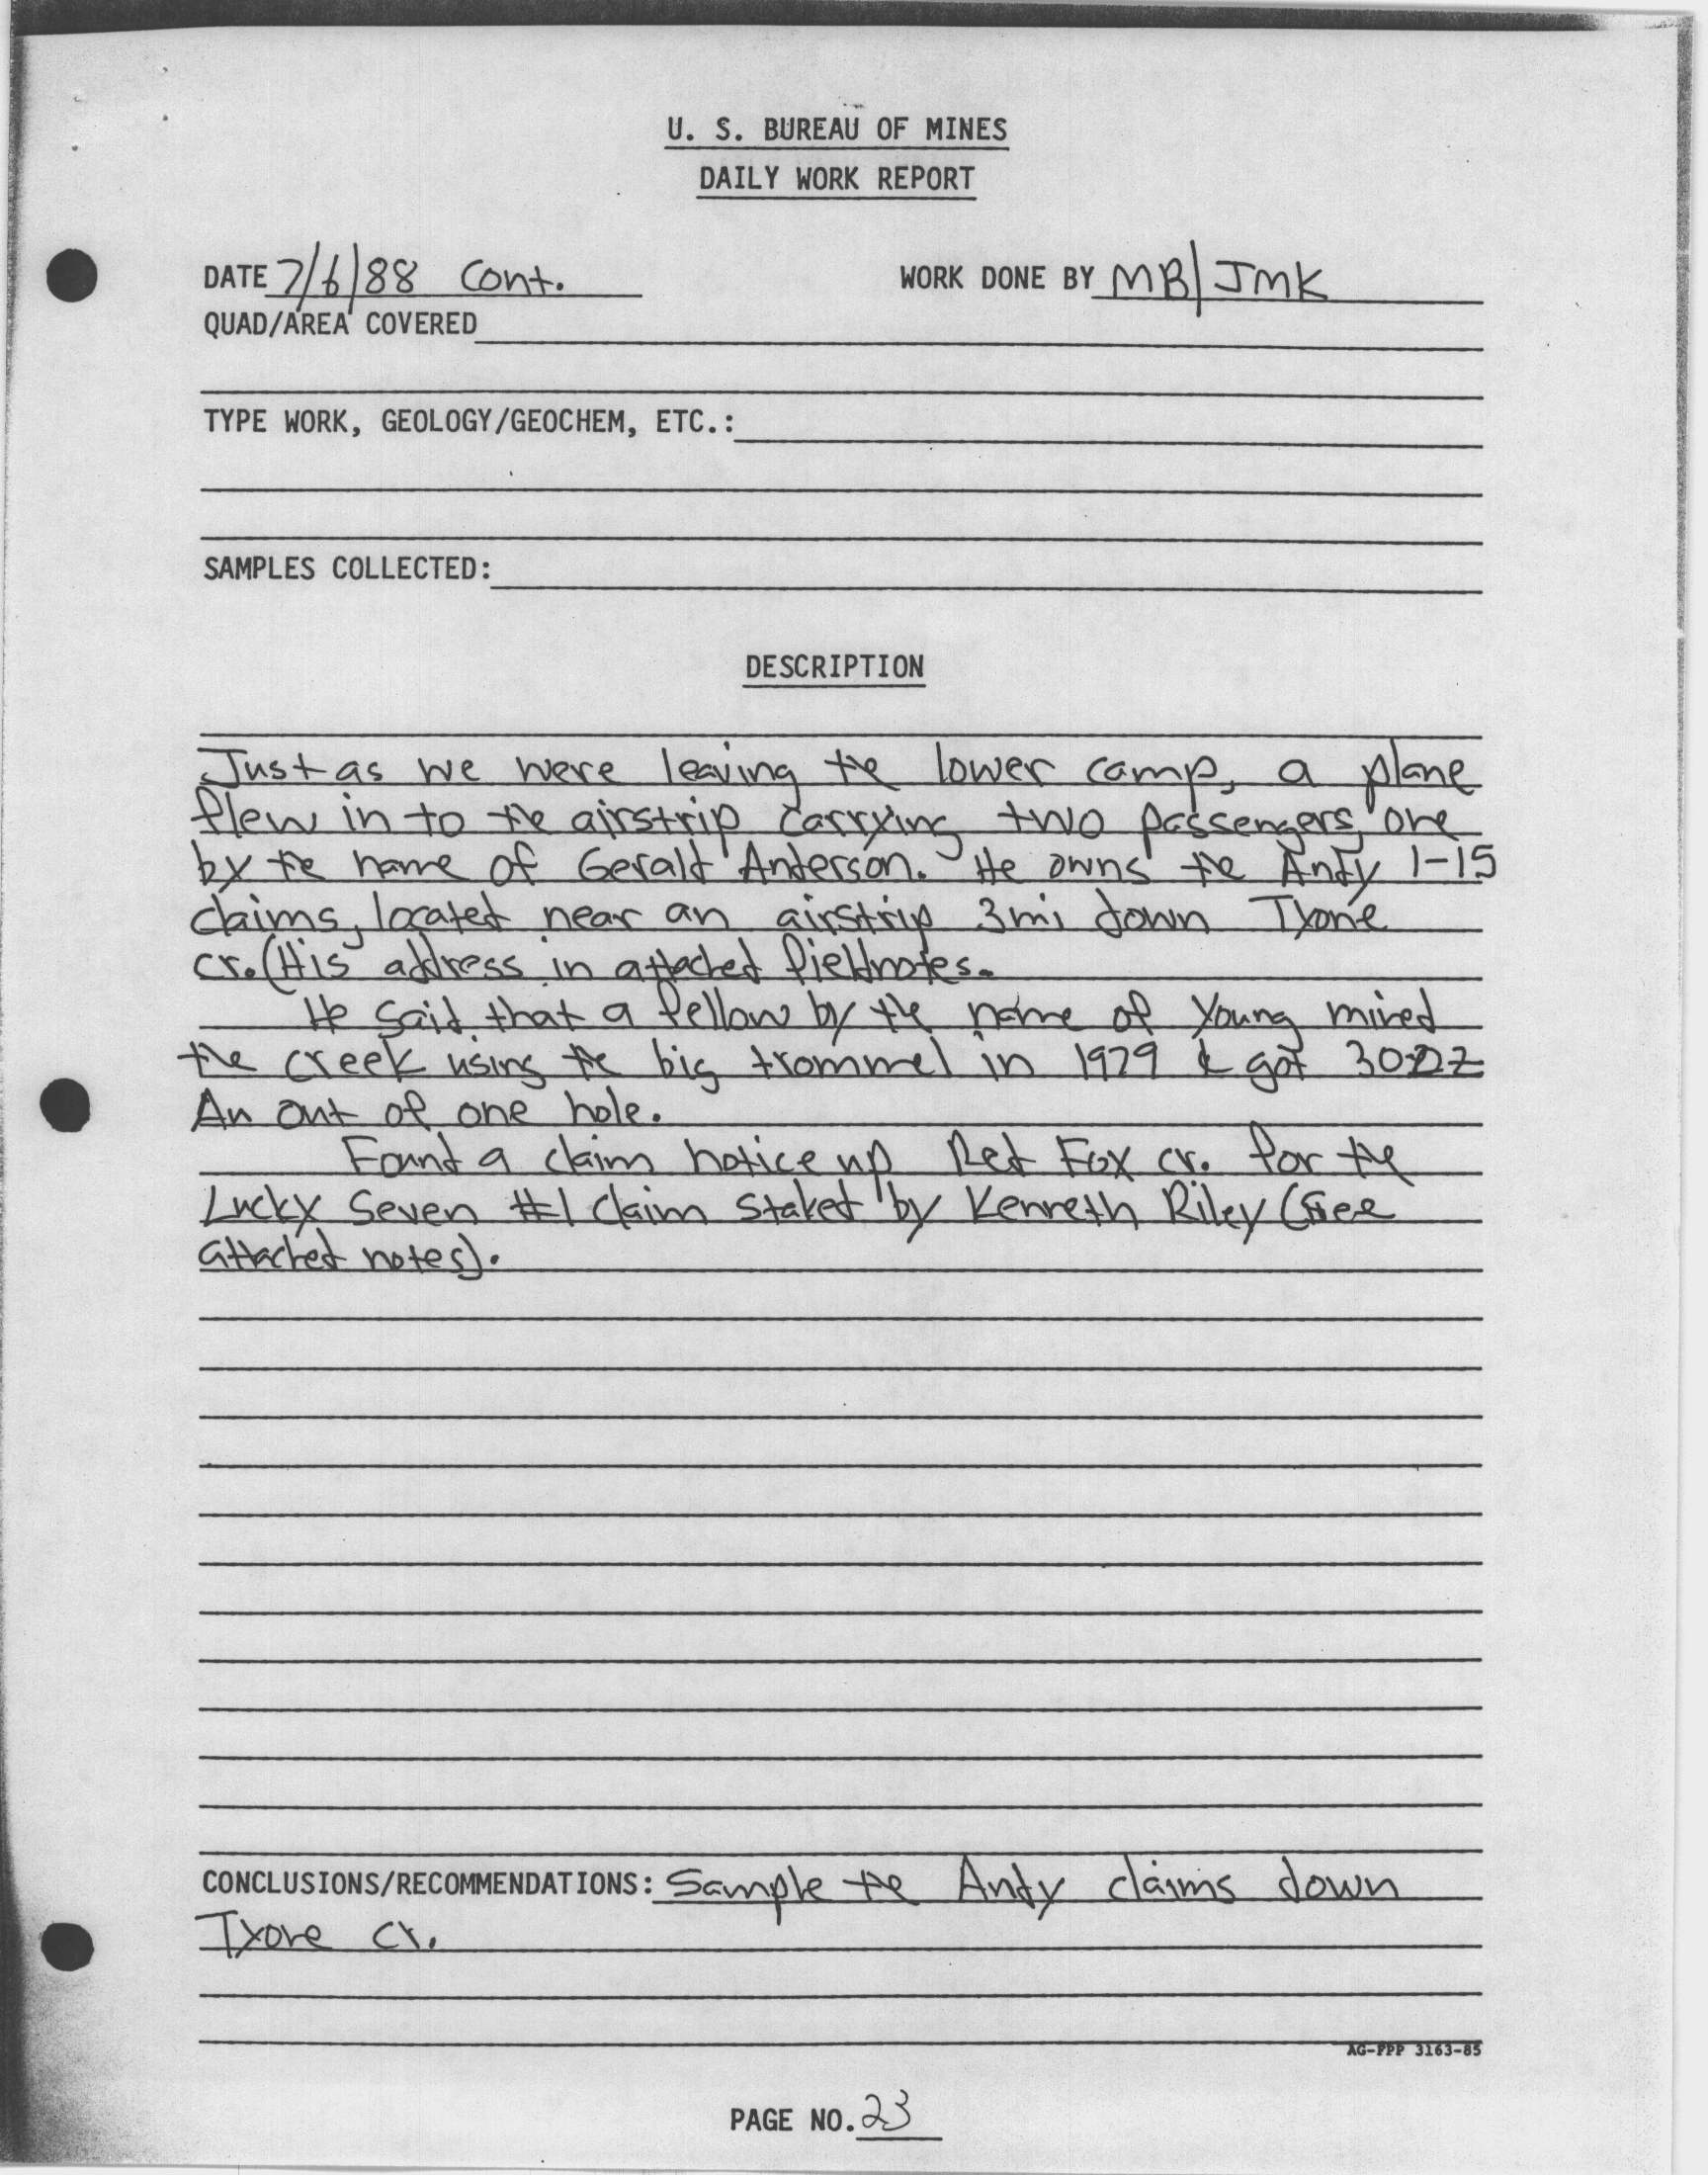 U. S. BUREAU OF MINES
DAILY WORK REPORT
DATE 7/6/88 cont. WORK DONE BY MB/JMK
QUAD/AREA COVERED
TYPE WORK, GEOLOGY/GEOCHEM, ETC.:
SAMPLES COLLECTED:
DESCRIPTION
Just as we were leaving the lower camp, a plane
flew in to the airstrip carrying two passengers, one
by the name of Gerald Anderson. He owns the Andy 1-15
claims, located near an airstrip 3mi down Tyone
cr. (His address in attached fieldnotes.
He said that a fellow by the name of Young mined
the creek using the big trommel in 1979 & got 30 oz
Au out of one hole.
Found a claim notice up Red Fox cr. for the
Lucky Seven #1 claim staked by Kenneth Riley (see
attached notes).
CONCLUSIONS/RECOMMENDATIONS: Sample the Andy claims down
Tyone cr.
AG-FPP 3163-85
PAGE NO. 23